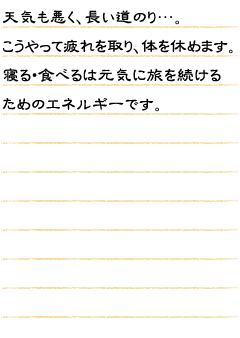 天気も悪く、長い道のり…。
こうやって疲れを取り、体を休めます。
寝る・食べるは元気に旅を続ける
ためのエネルギーです。